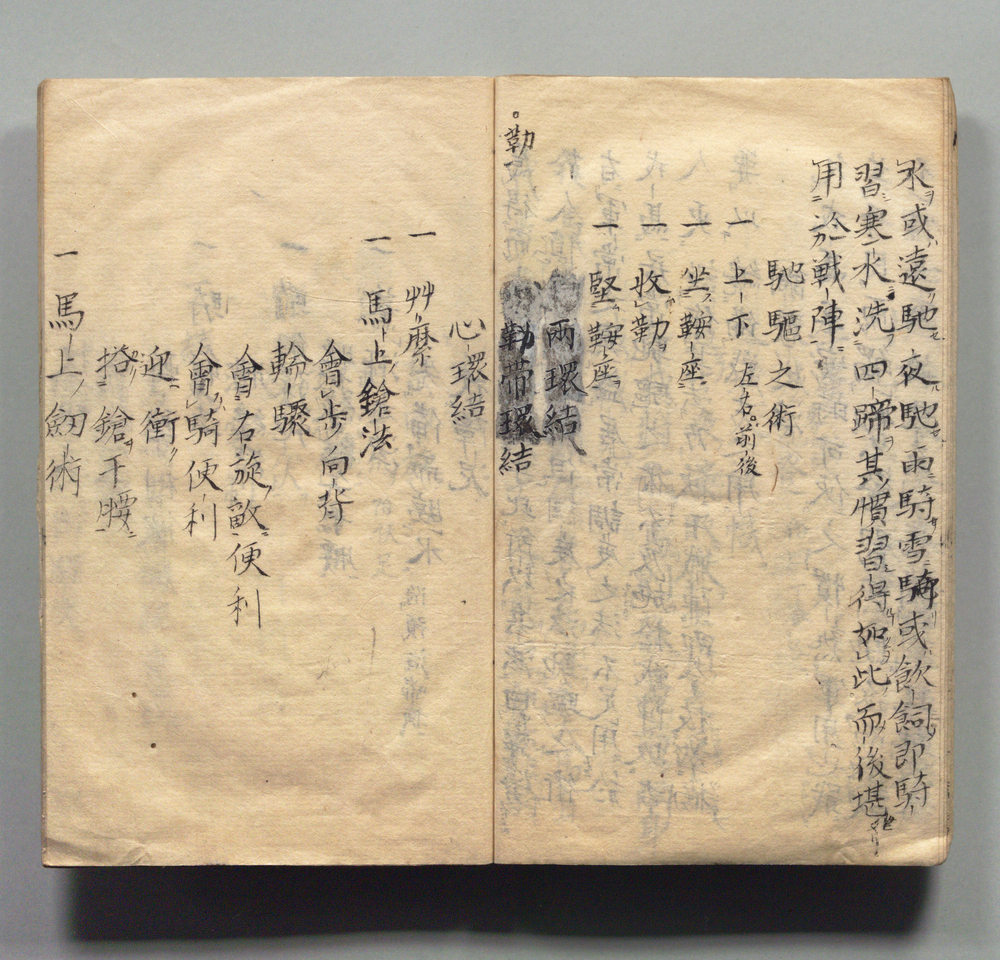 氷ヲ或遠馳セ夜馳セ雨ニ騎リ雪ニ騎リ或飲飼即騎
習寒水洗四蹄ヲ其慣習得如此而後堪
用於戦陣ニ
馳驅之術
一上下 左右前後
一坐鞍座
一收勒
一堅鞍座
両環結
。勒 勒帯環結
心環結
一艸麼
一馬上鎗法
會歩向背
輪驟
會右旋敵便利
會騎便利
迎衝
搭鎗于腰
一馬上劔術